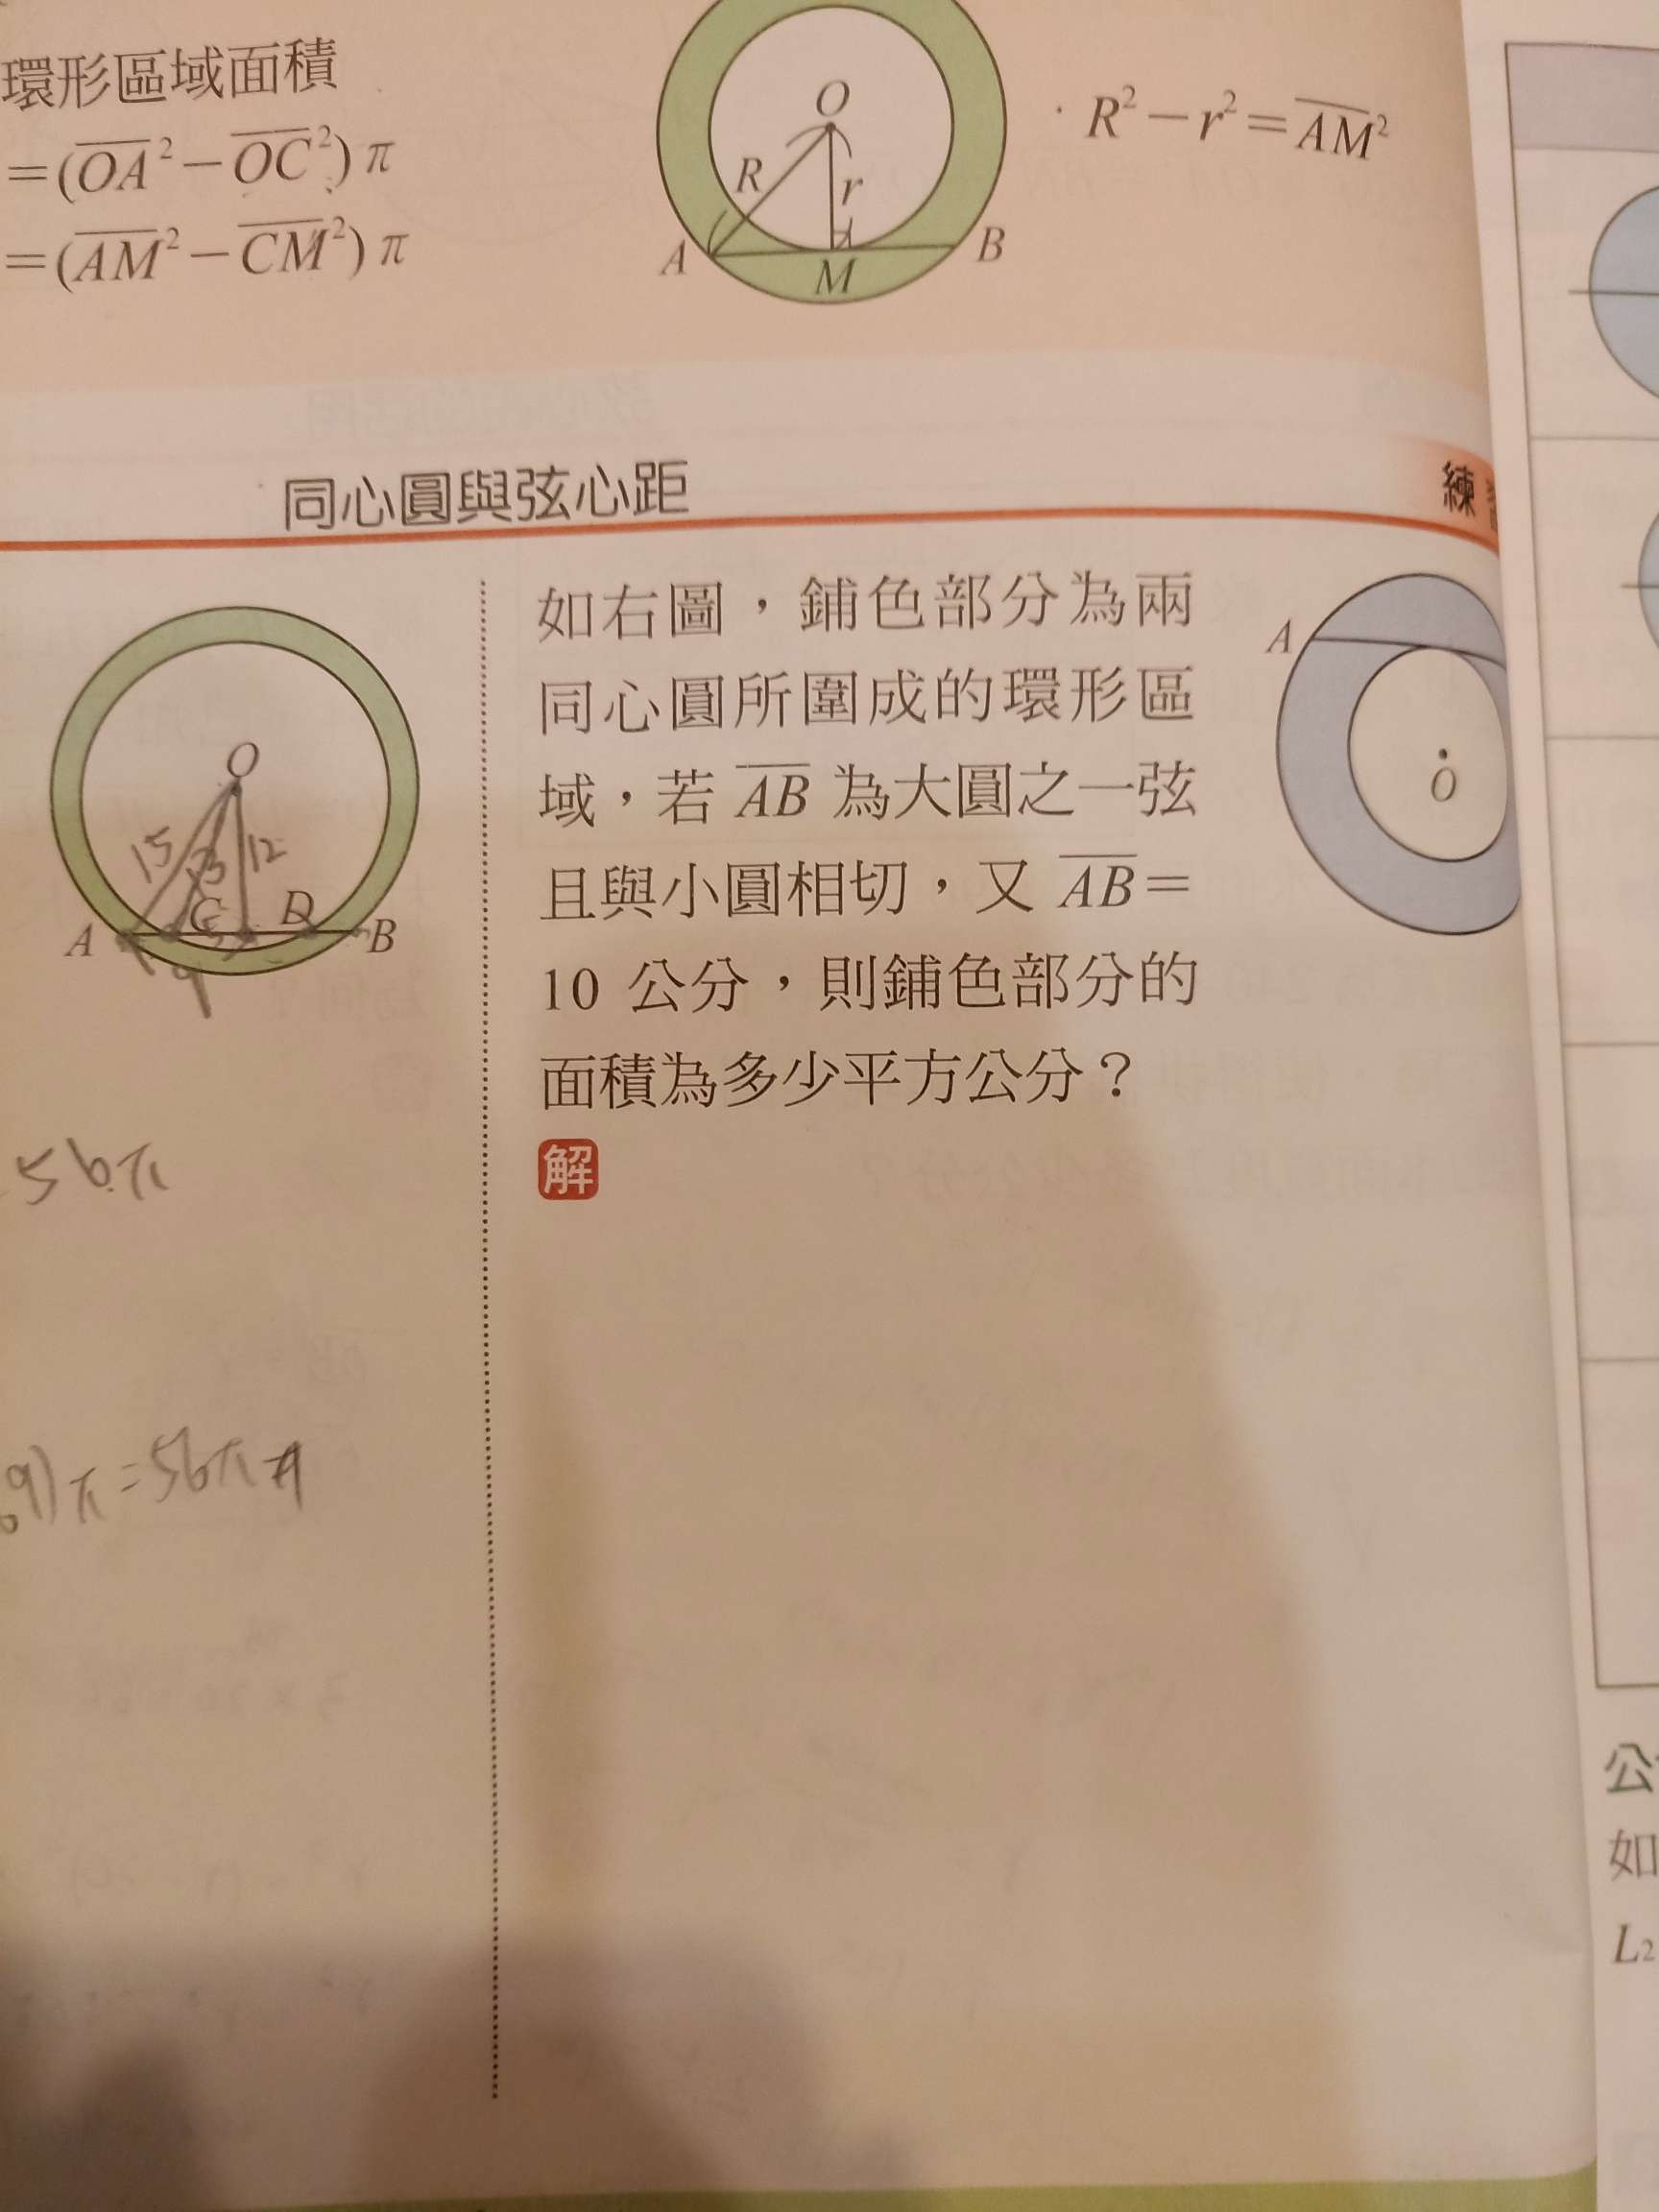 環形區域面積
=(OA²-OC²)π
=(AM²-CM²)π
O
R
r
A
M
B
R²-r²=AM²
同心圓與弦心距
練
O
15
13
12
C
5
D
A
B
9
56π
9)π=56π
如右圖，鋪色部分為兩
同心圓所圍成的環形區
域，若 AB 為大圓之一弦
且與小圓相切，又 AB=
10 公分，則鋪色部分的
面積為多少平方公分？
解
A
O
公
如
L₂